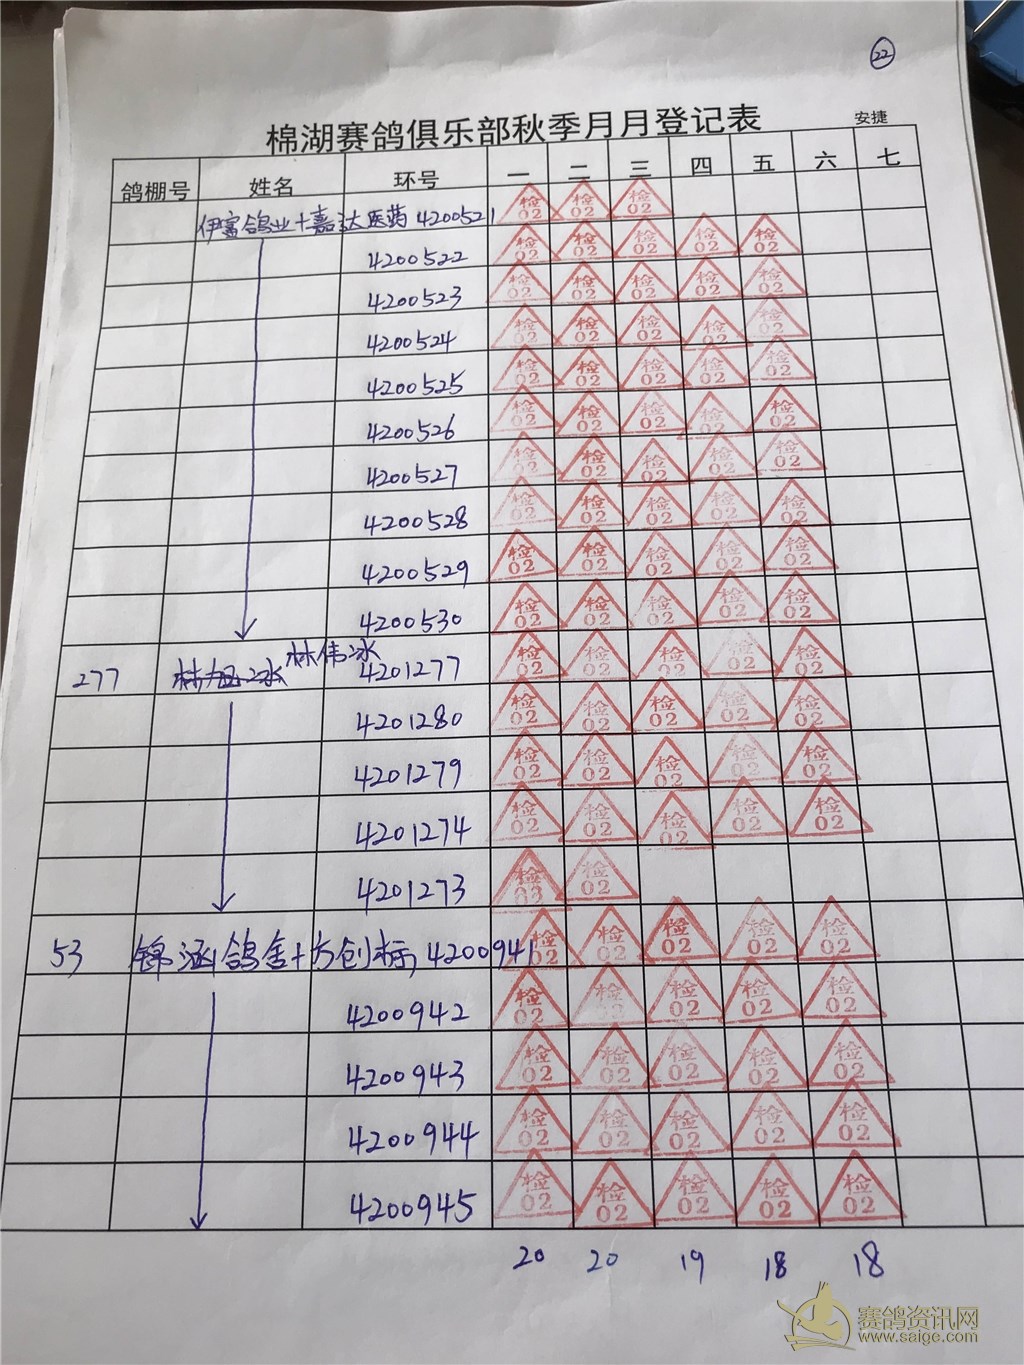 22
棉湖赛鸽俱乐部秋季月月登记表 安捷
鸽棚号 姓名 环号 一 二 三 四 五 六 七
伊富鸽业+嘉达医药 4200521 检02 检02 检02
4200522 检02 检02 检02 检02 检02
4200523 检02 检02 检02 检02 检02
4200524 检02 检02 检02 检02 检02
4200525 检02 检02 检02 检02 检02
4200526 检02 检02 检02 检02 检02
4200527 检02 检02 检02 检02 检02
4200528 检02 检02 检02 检02 检02
4200529 检02 检02 检02 检02 检02
4200530 检02 检02 检02 检02 检02
277 林伟冰 4201277 检02 检02 检02 检02 检02
4201280 检02 检02 检02 检02 检02
4201279 检02 检02 检02 检02 检02
4201274 检02 检02 检02 检02 检02
4201273 检02 检02
53 锦涵鸽舍+方创标 4200941 检02 检02 检02 检02 检02
4200942 检02 检02 检02 检02 检02
4200943 检02 检02 检02 检02 检02
4200944 检02 检02 检02 检02 检02
4200945 检02 检02 检02 检02 检02
20 20 19 18 18
赛鸽资讯网
www.saige.com